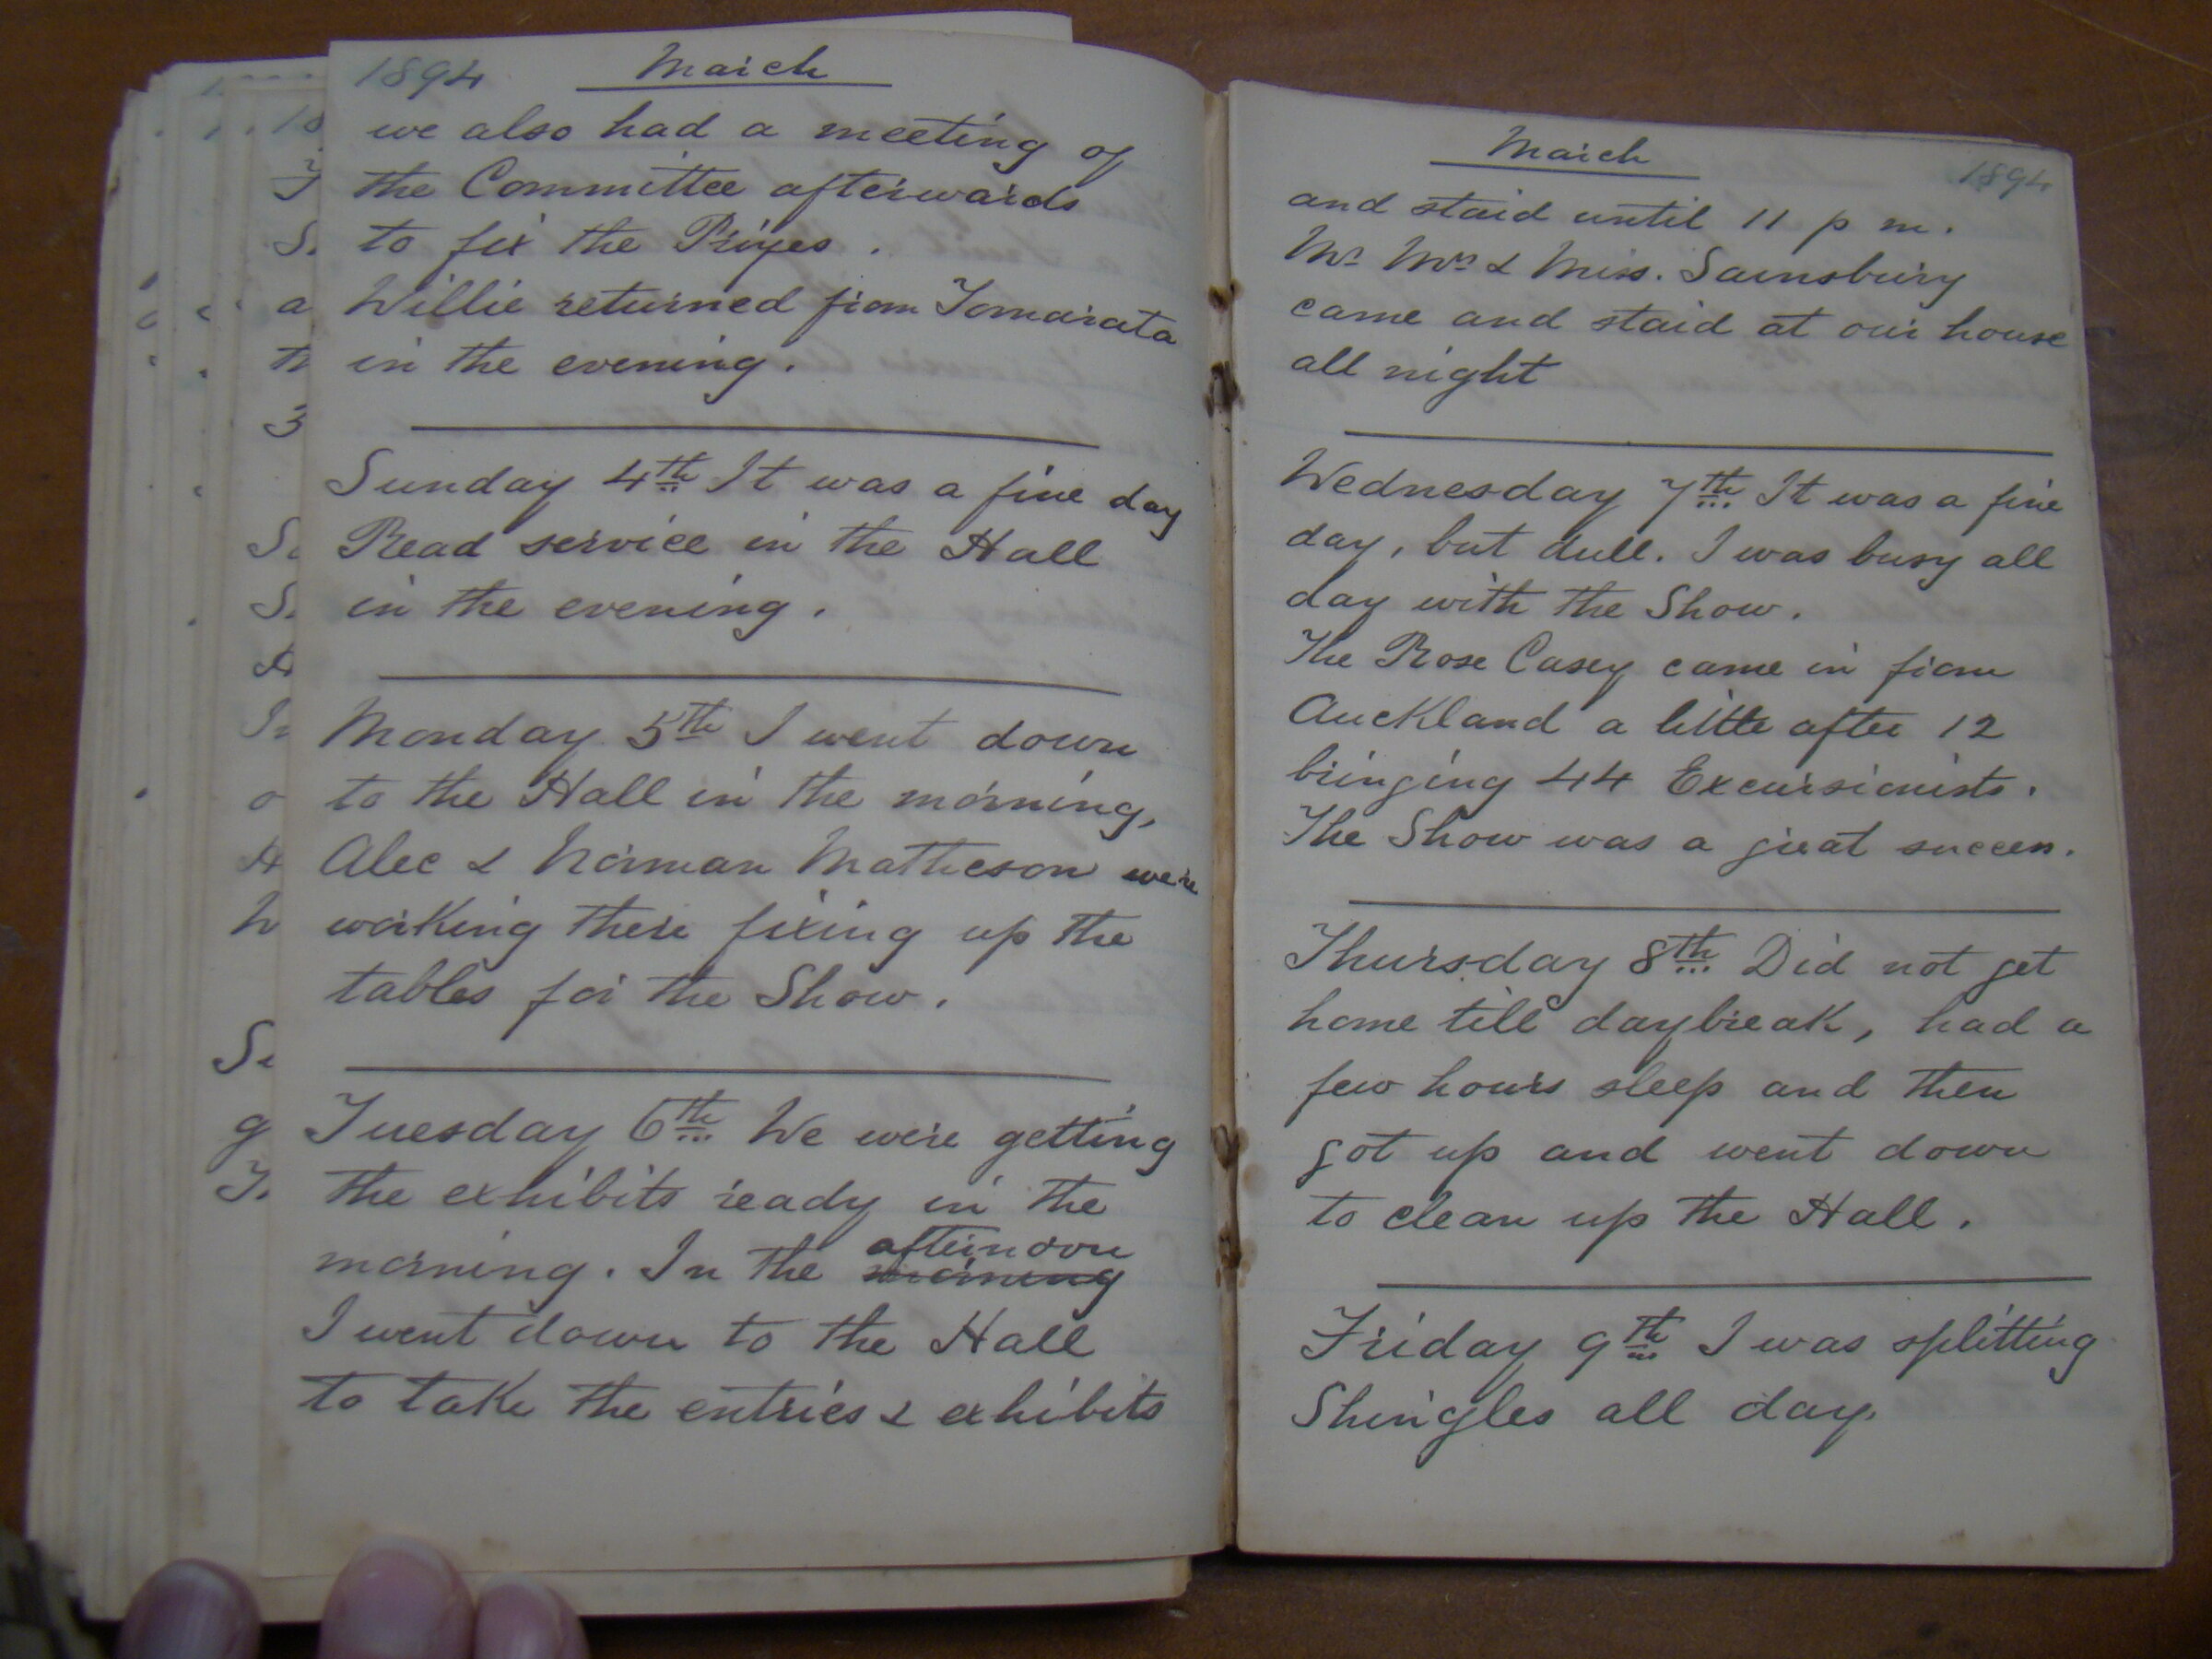 1894 March
we also had a meeting of
the Committee afterwards
to fix the Prizes.
Willie returned from Tomarata
in the evening.
Sunday 4th It was a fine day
Read service in the Hall
in the evening.
Monday 5th I went down
to the Hall in the morning,
Alec & Norman Matheson were
working there fixing up the
tables for the Show.
Tuesday 6th We were getting
the exhibits ready in the
morning. In the morning afternoon
I went down to the Hall
to take the entries & exhibits
March 1894
and staid until 11 p m.
Mr Mrs & Miss. Sainsbury
came and staid at our house
all night
Wednesday 7th It was a fine
day, but dull. I was busy all
day with the Show.
The Rose Casey came in from
Auckland a little after 12
bringing 44 Excursionists.
The Show was a great success.
Thursday 8th Did not get
home till daybreak, had a
few hours sleep and then
got up and went down
to clean up the Hall.
Friday 9th I was splitting
Shingles all day.